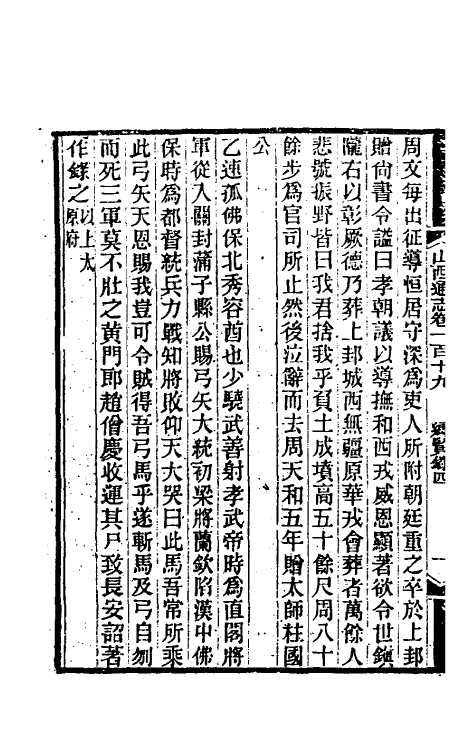 周文每出征導恒居守深爲吏人所附朝廷重之卒於上邽
贈尙書令諡曰孝朝議以導撫和西戎威恩顯著欲令世鎭
隴右以彰厥德乃葬上邽城西無疆原華戎會葬者萬餘人
悲號振野皆曰我君捨我乎負土成墳高五十餘尺周八十
餘步爲官司所止然後泣辭而去周天和五年贈太師柱國
公
乙速孤佛保北秀容酋也少驍武善射孝武帝時爲直閣將
軍從入關封蒲子縣公賜弓矢大統初梁將蘭欽陷漢中佛
保時爲都督統兵力戰知將敗仰天大哭曰此馬吾常所乘
此弓矢天恩賜我豈可令賊得吾弓馬乎遂斬馬及弓自刎
而死三軍莫不壯之黃門郎趙僧慶收運其尸致長安詔著
作錄之以上太原府
山西通志卷一百十九 鄉賢錄四 一